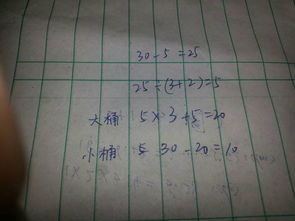 30-5=25
25÷(3+2)=5
大桶 5×3+5=20
小桶 30-20=10